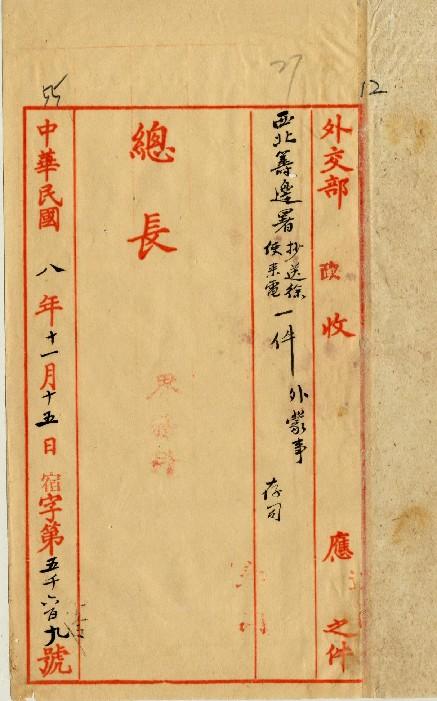 27
12
55
外交部 政 收 應 之件
西北籌邊署抄送徐使來電一件 外蒙事 存司
總長
中華民國八年十一月十五日 宿字第五千六百九號